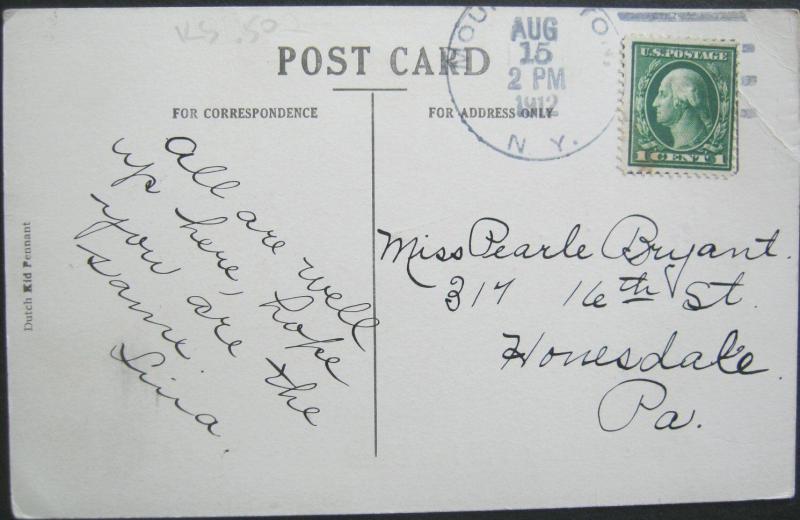 POST CARD
FOR CORRESPONDENCE
FOR ADDRESS ONLY
AUG
15
2 PM
1912
N. Y.
U.S. POSTAGE
1 CENT 1
All are well
up here, hope
you are the
same.
Lina.
Miss Pearle Bryant.
317 16th St.
Honesdale.
Pa.
Dutch Kid Pennant